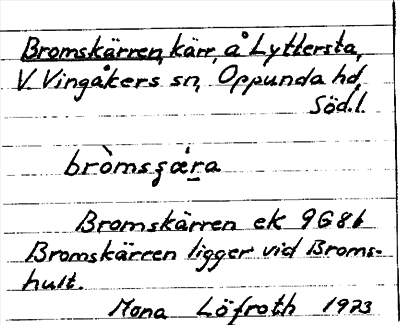 Bromskärren, kärr, å Lyttersta,
V. Vingåkers sn, Oppunda hd,
Söd.l.
bròmsʂǽra
Bromskärren ek 9G8b
Bromskärren ligger vid Broms-
hult.
Mona Löfroth 1973